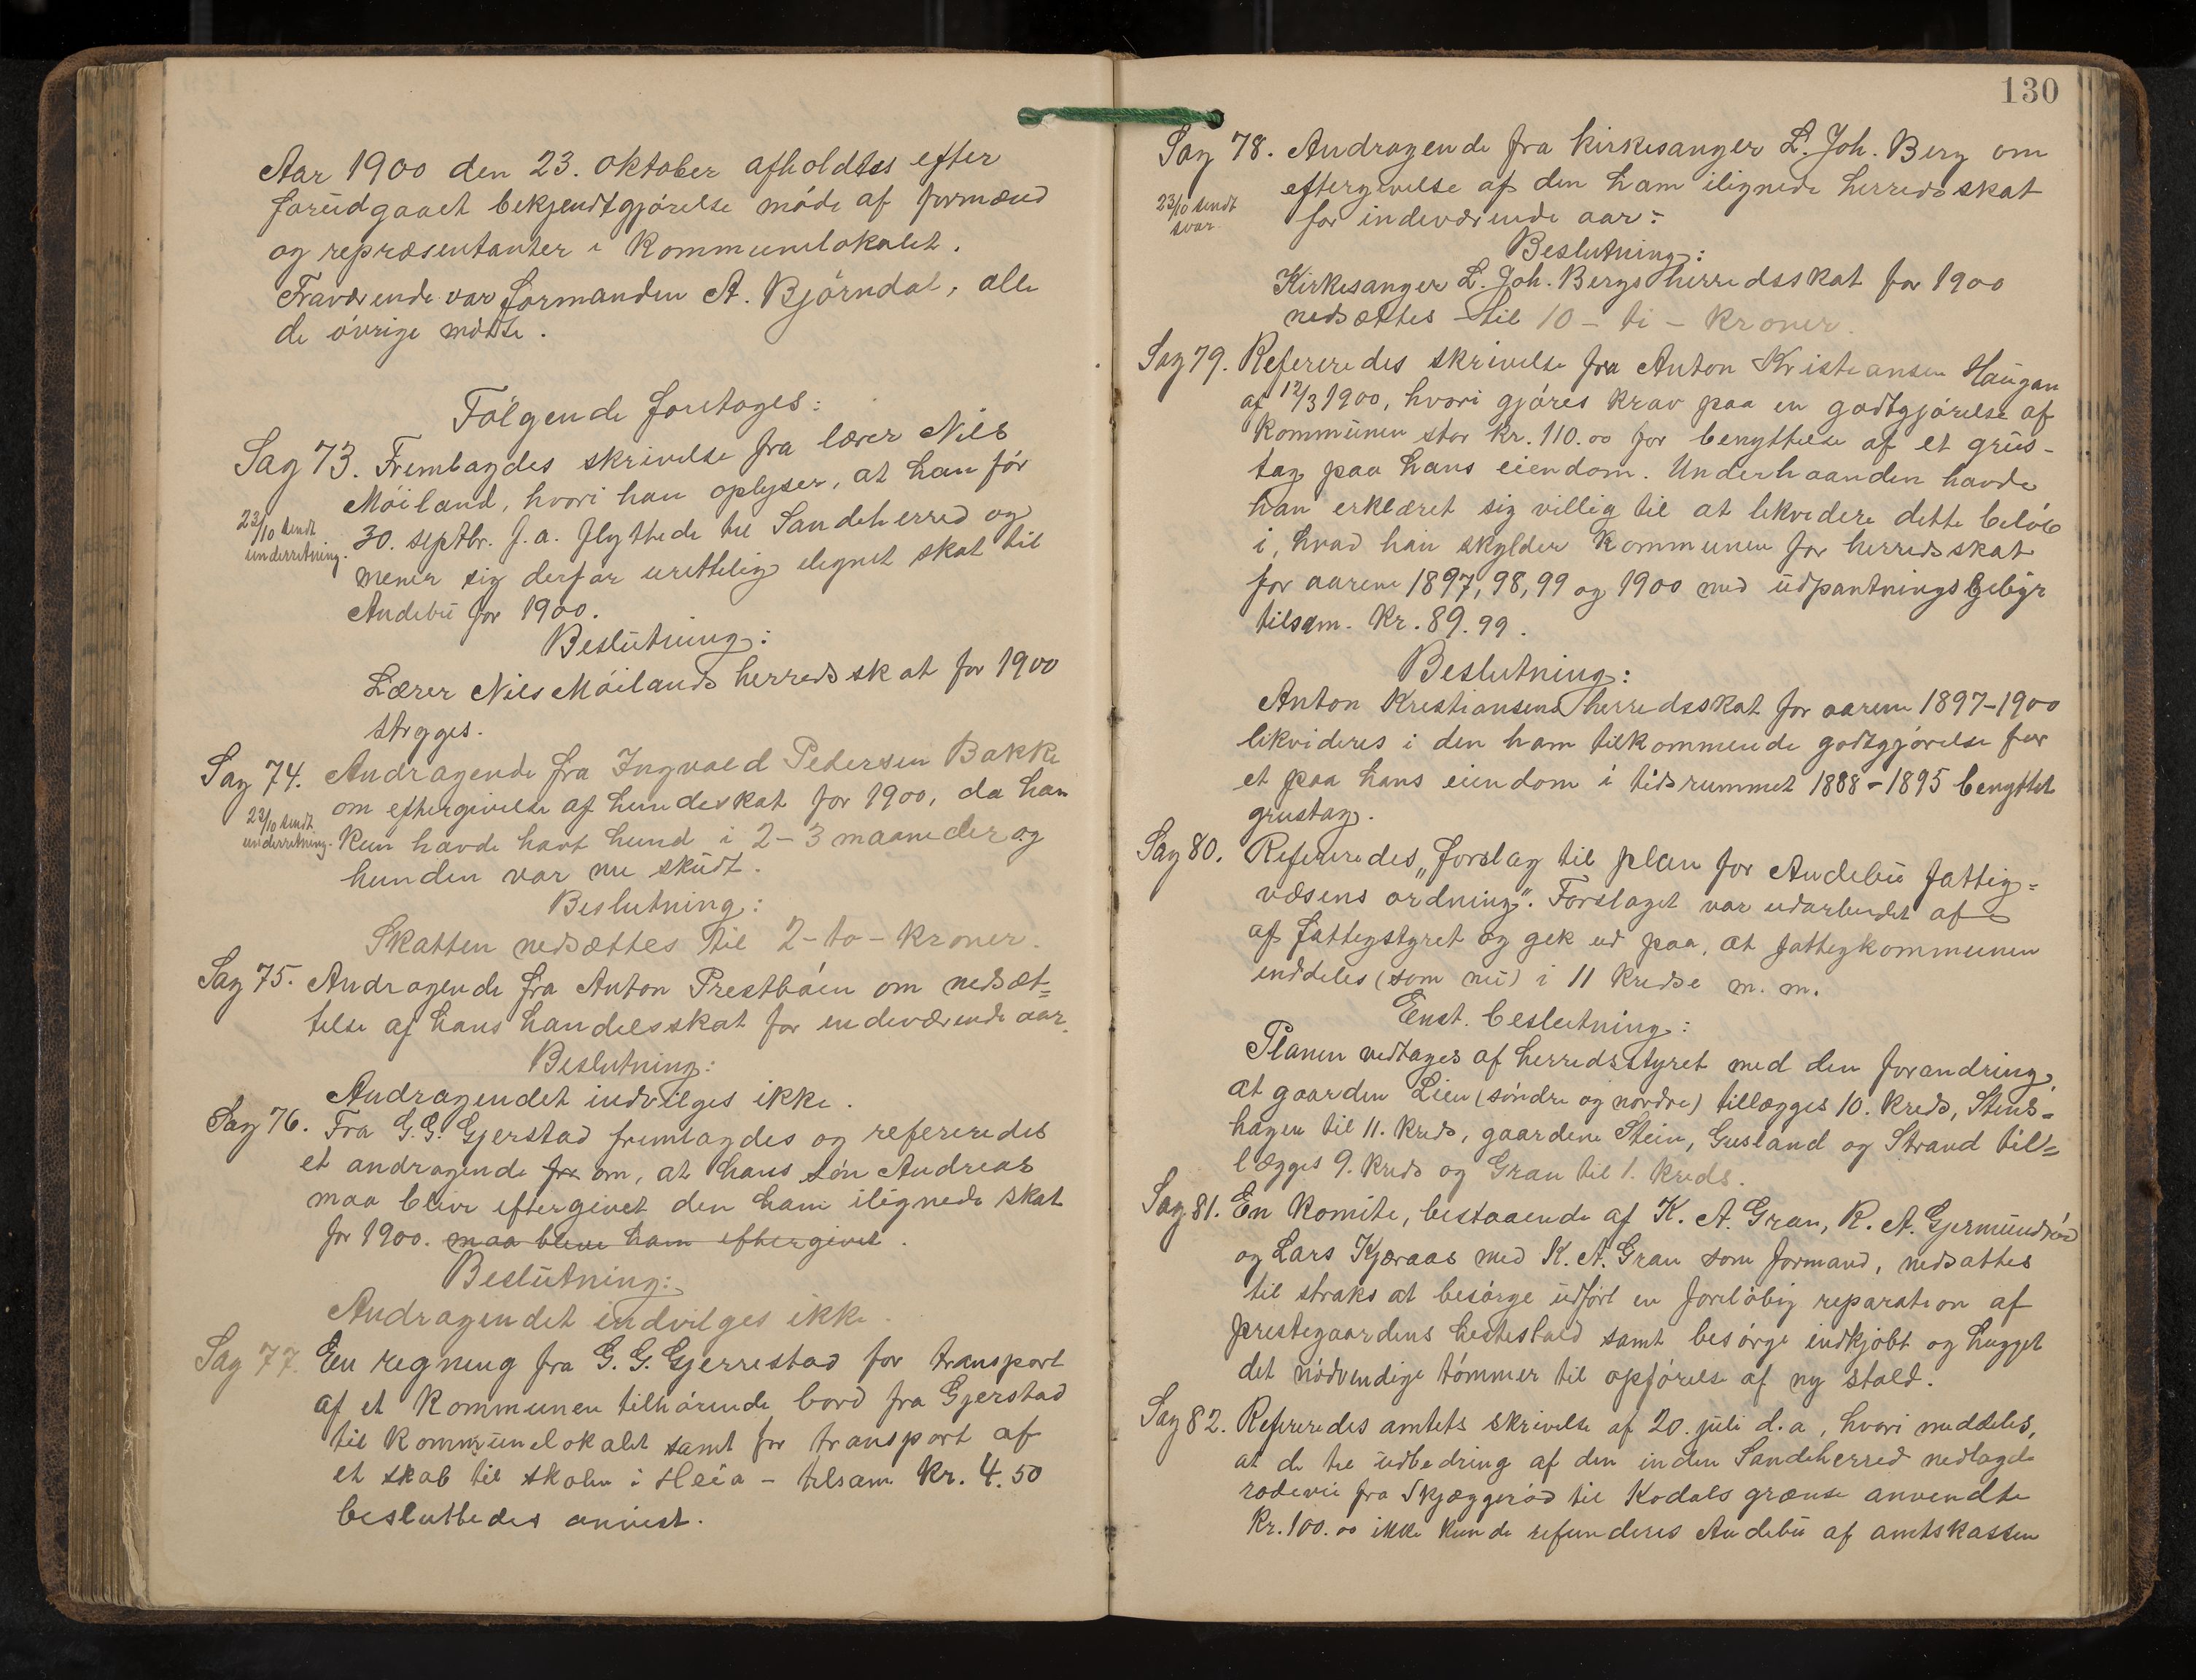 Aar 1900 den 23. oktober afholdtes efter
forudgaaet bekjendtgjørelse møde af formænd
og repræsentanter i Kommunelokalet.
Fraværende var formanden A. Bjørndal, alle
de øvrige mødte.
Følgende foretoges:
Sag 73. Fremlagdes skrivelse fra lærer Nils
Møiland, hvori han oplyser, at han før
23/10 sendt
underretning.
30. septbr. f.a. flyttede til Sandeherred og
mener sig derfor urettelig ilignet skat til
Andebu for 1900.
Beslutning:
Lærer Nils Møilands herredsskat for 1900
stryges.
Sag 74. Andragende fra Ingvald Pedersen Bakke
om eftergivelse af hundeskat for 1900, da han
23/10 sendt
underretning.
kun havde havt hund i 2-3 maaneder og
hunden var nu skudt.
Beslutning:
Skatten nedsættes til 2-to-kroner.
Sag 75. Andragende fra Anton Prestbøen om nedsæt=
telse af hans handelsskat for indeværende aar.
Beslutning:
Andragendet indvilges ikke.
Sag 76. Fra G.G. Gjerstad fremlagdes og refereredes
et andragende fra om, at hans søn Andreas
maa blive eftergivet den ham ilignede skat
for 1900. maa blive ham eftergivet.
Beslutning:
Andragendet indvilges ikke.
Sag 77. En regning fra G.G. Gjerrestad for transport
af et kommunen tilhørende bord fra Gjerstad
til kommunelokalet samt for transport af
et skab til skolen i Heia - tilsam. kr. 4.50
besluttedes anvist.
130
Sag 78. Andragende fra kirkesanger L. Joh. Berg om
eftergivelse af den ham ilignede herredsskat
23/10 sendt
svar
for indeværende aar:
Beslutning:
Kirkesanger L. Joh. Bergs herredsskat for 1900
nedsættes til 10 - ti - kroner.
Sag 79. Refereredes skrivelse fra Anton Kristiansen Haugan
af 12/3 1900, hvori gjøres krav paa en godtgjørelse af
kommunen stor kr. 110.00 for benyttelse af et grus-
tag paa hans eiendom. Underhaanden havde
han erklæret sig villig til at likvidere dette beløb
i, hvad han skylder kommunen for herredsskat
for aarene 1897, 98, 99 og 1900 med udpantningsgebyr
tilsam. kr. 89.99.
Beslutning:
Anton Kristiansens herredsskat for aarene 1897-1900
likvideres i den ham tilkommende godtgjørelse for
et paa hans eiendom i tidsrummet 1888-1895 benyttet
grustag.
Sag 80. Refereredes „forslag til plan for Andebu fattig=
væsens ordning". Forslaget var udarbeidet af
af fattigstyret og gik ud paa, at fattigkommunen
inddeles (som nu) i 11 kredse m.m.
Enst. beslutning:
Planen vedtages af herredsstyret med den forandring,
at gaarden Lien (søndre og nordre) tillægges 10. kreds, Stens-
hagen til 11. kreds, gaardene Stein, Gusland og Strand til=
lægges 9. kreds og Gran til 1. kreds.
Sag 81. En komite, bestaaende af K. A. Gran, R. A. Gjermundrød
og Lars Kjæraas med K. A. Gran som formand, nedsattes
til straks at besørge udført en foreløbig reparation af
prestegaardens hestestald samt besørge indkjøbt og hugget
det nødvendige tømmer til opførelse af ny stald.
Sag 82. Refereredes amtets skrivelse af 20. juli d.a., hvori meddeles,
at de til udbedring af den inden Sandeherred nedlagde
rodevei fra Skjæggerød til Kodals grænse anvendte
kr. 100.00 ikke kunde refunderes Andebu af amtskassen